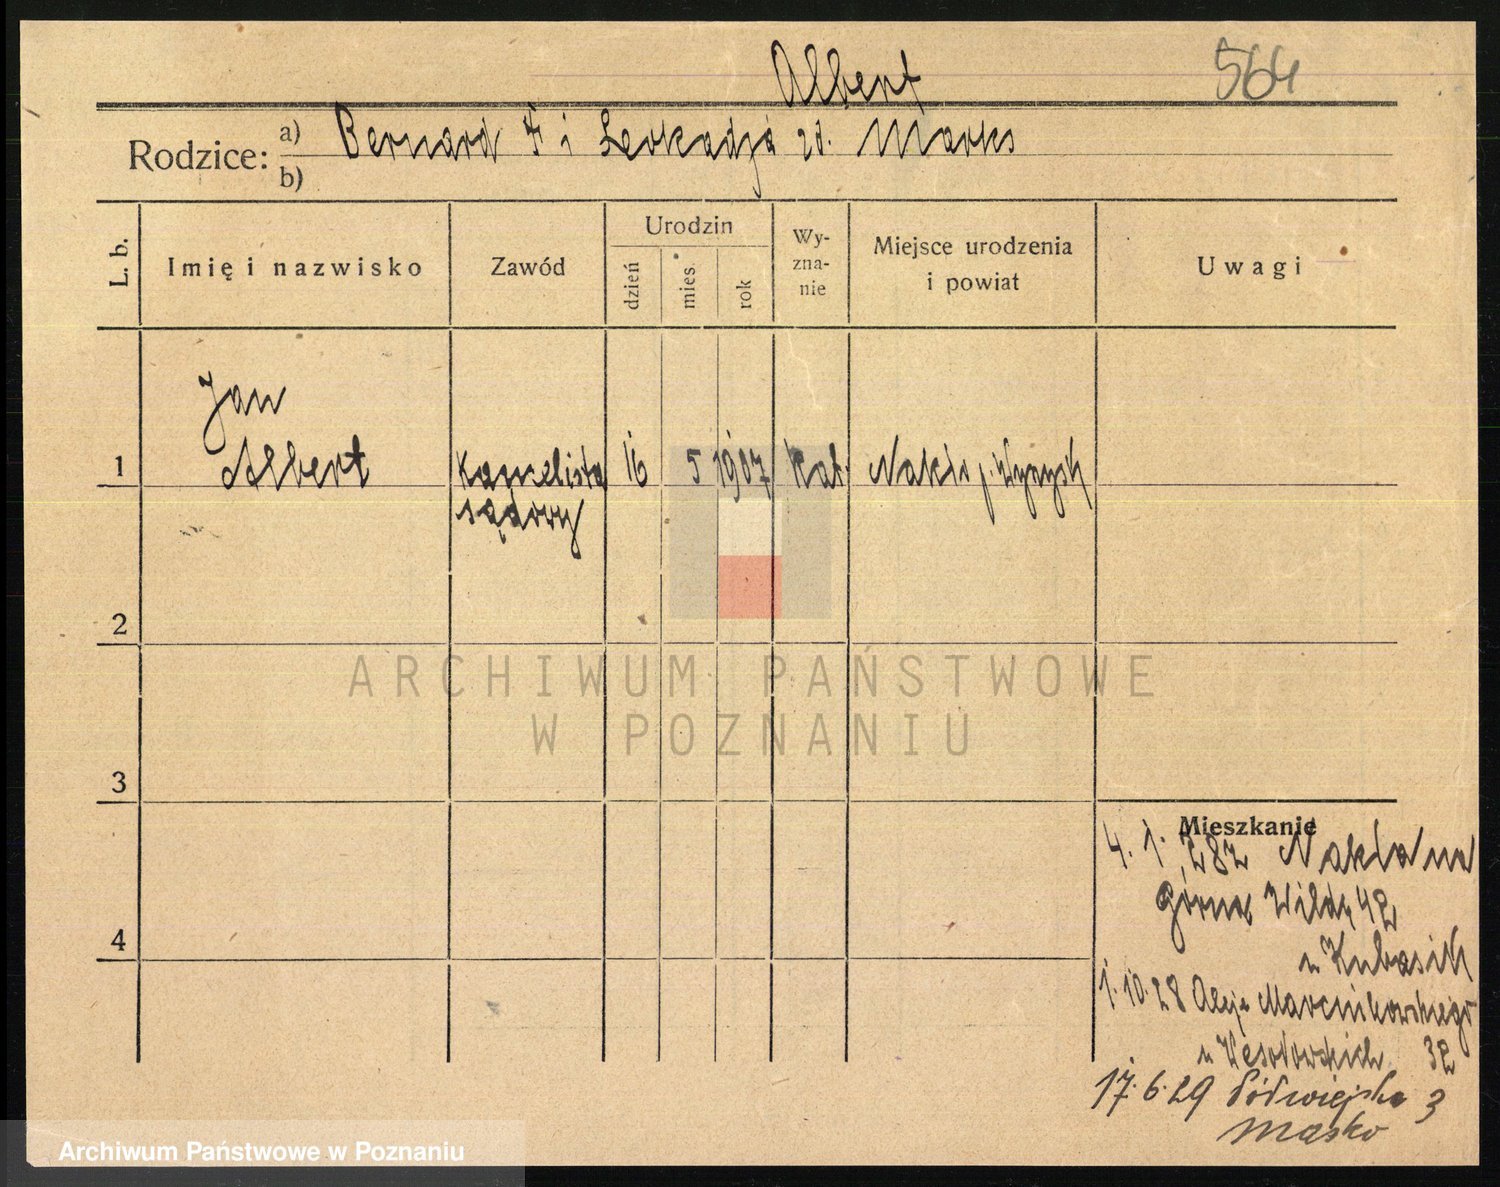 Albert
564
Rodzice: a) Bernard i Leokadja zd. Marks
b)
L. b.
Imię i nazwisko
Zawód
Urodzin
dzień
mies.
rok
Wy-
zna-
nie
Miejsce urodzenia
i powiat
Uwagi
Jan
1 Albert kancelista 16 5 1907 kat. Nakło p. Wyrzysk
sądowy
2
3
4
ARCHIWUM PAŃSTWOWE
W POZNANIU
Mieszkanie
4. 1. 28 z Nakła na
Górna Wilda 42
u Kubasik
1. 10. 28 Aleje Marcinkowskiego
u Wesołowskich 32
17. 6. 29 Półwiejska 3
Masko
Archiwum Państwowe w Poznaniu